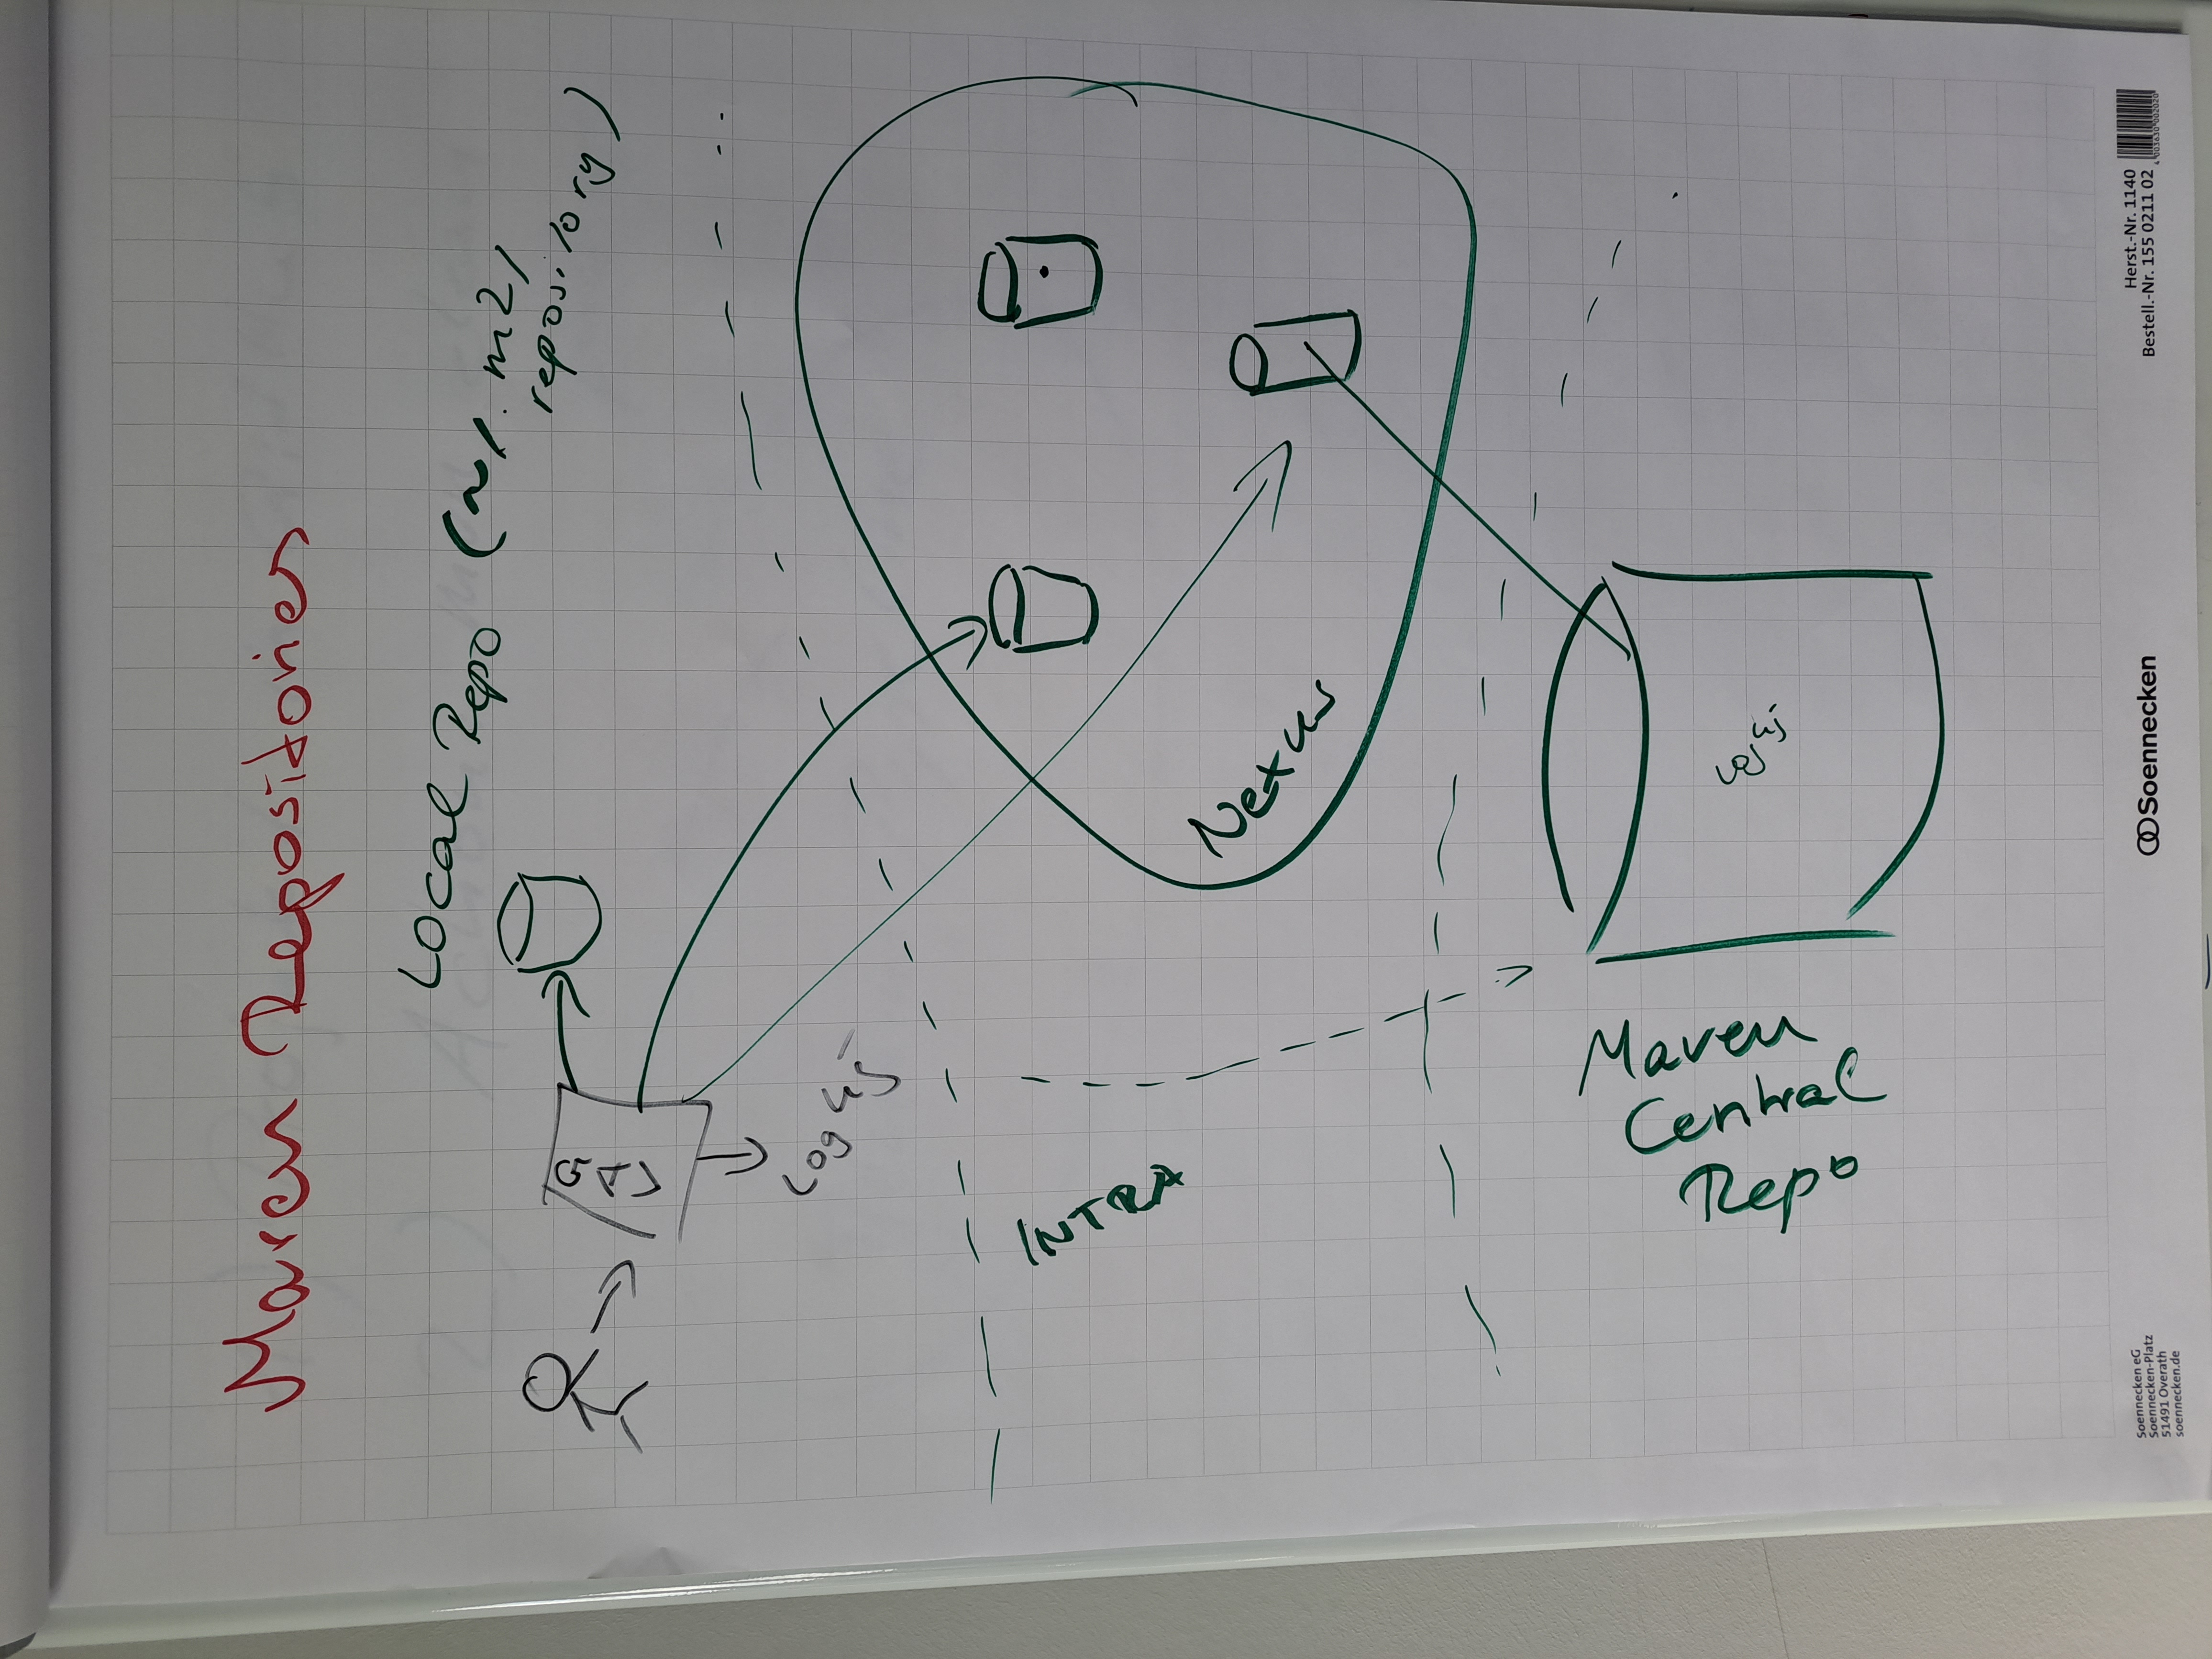 Maven Repositories
Local Repo (~/.m2/
repository)
G
A
V
Log4j
Nexus
Maven
Central
Repo
Log4j
Soennecken eG
Soennecken-Platz
51491 Overath
soennecken.de
Soennecken
Herst.-Nr. 1140
Bestell.-Nr. 155 0211 02
4 003630 002020